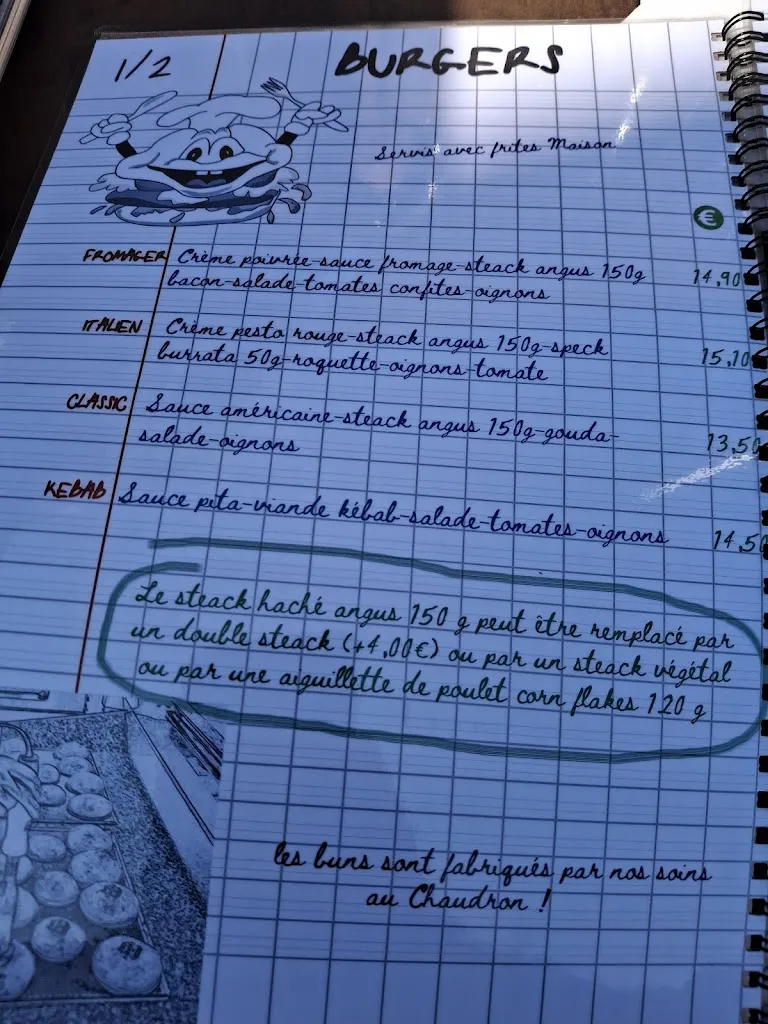 1/2
BURGERS
Servis avec frites Maison
€
FROMAGER Crème poivrée-sauce fromage-steack angus 150g 14,90
bacon-salade-tomates confites-oignons
ITALIEN Crème pesto rouge-steack angus 150g-speck
burrata 50g-roquette-oignons-tomate 15,10
CLASSIC Sauce américaine-steack angus 150g-gouda- 13,50
salade-oignons
KEBAB Sauce pita-viande kébab-salade-tomates-oignons 14,50
Le steack haché angus 150 g peut être remplacé par
un double steack (+4,00€) ou par un steack végétal
ou par une aiguillette de poulet corn flakes 120 g
les buns sont fabriqués par nos soins
au Chaudron !